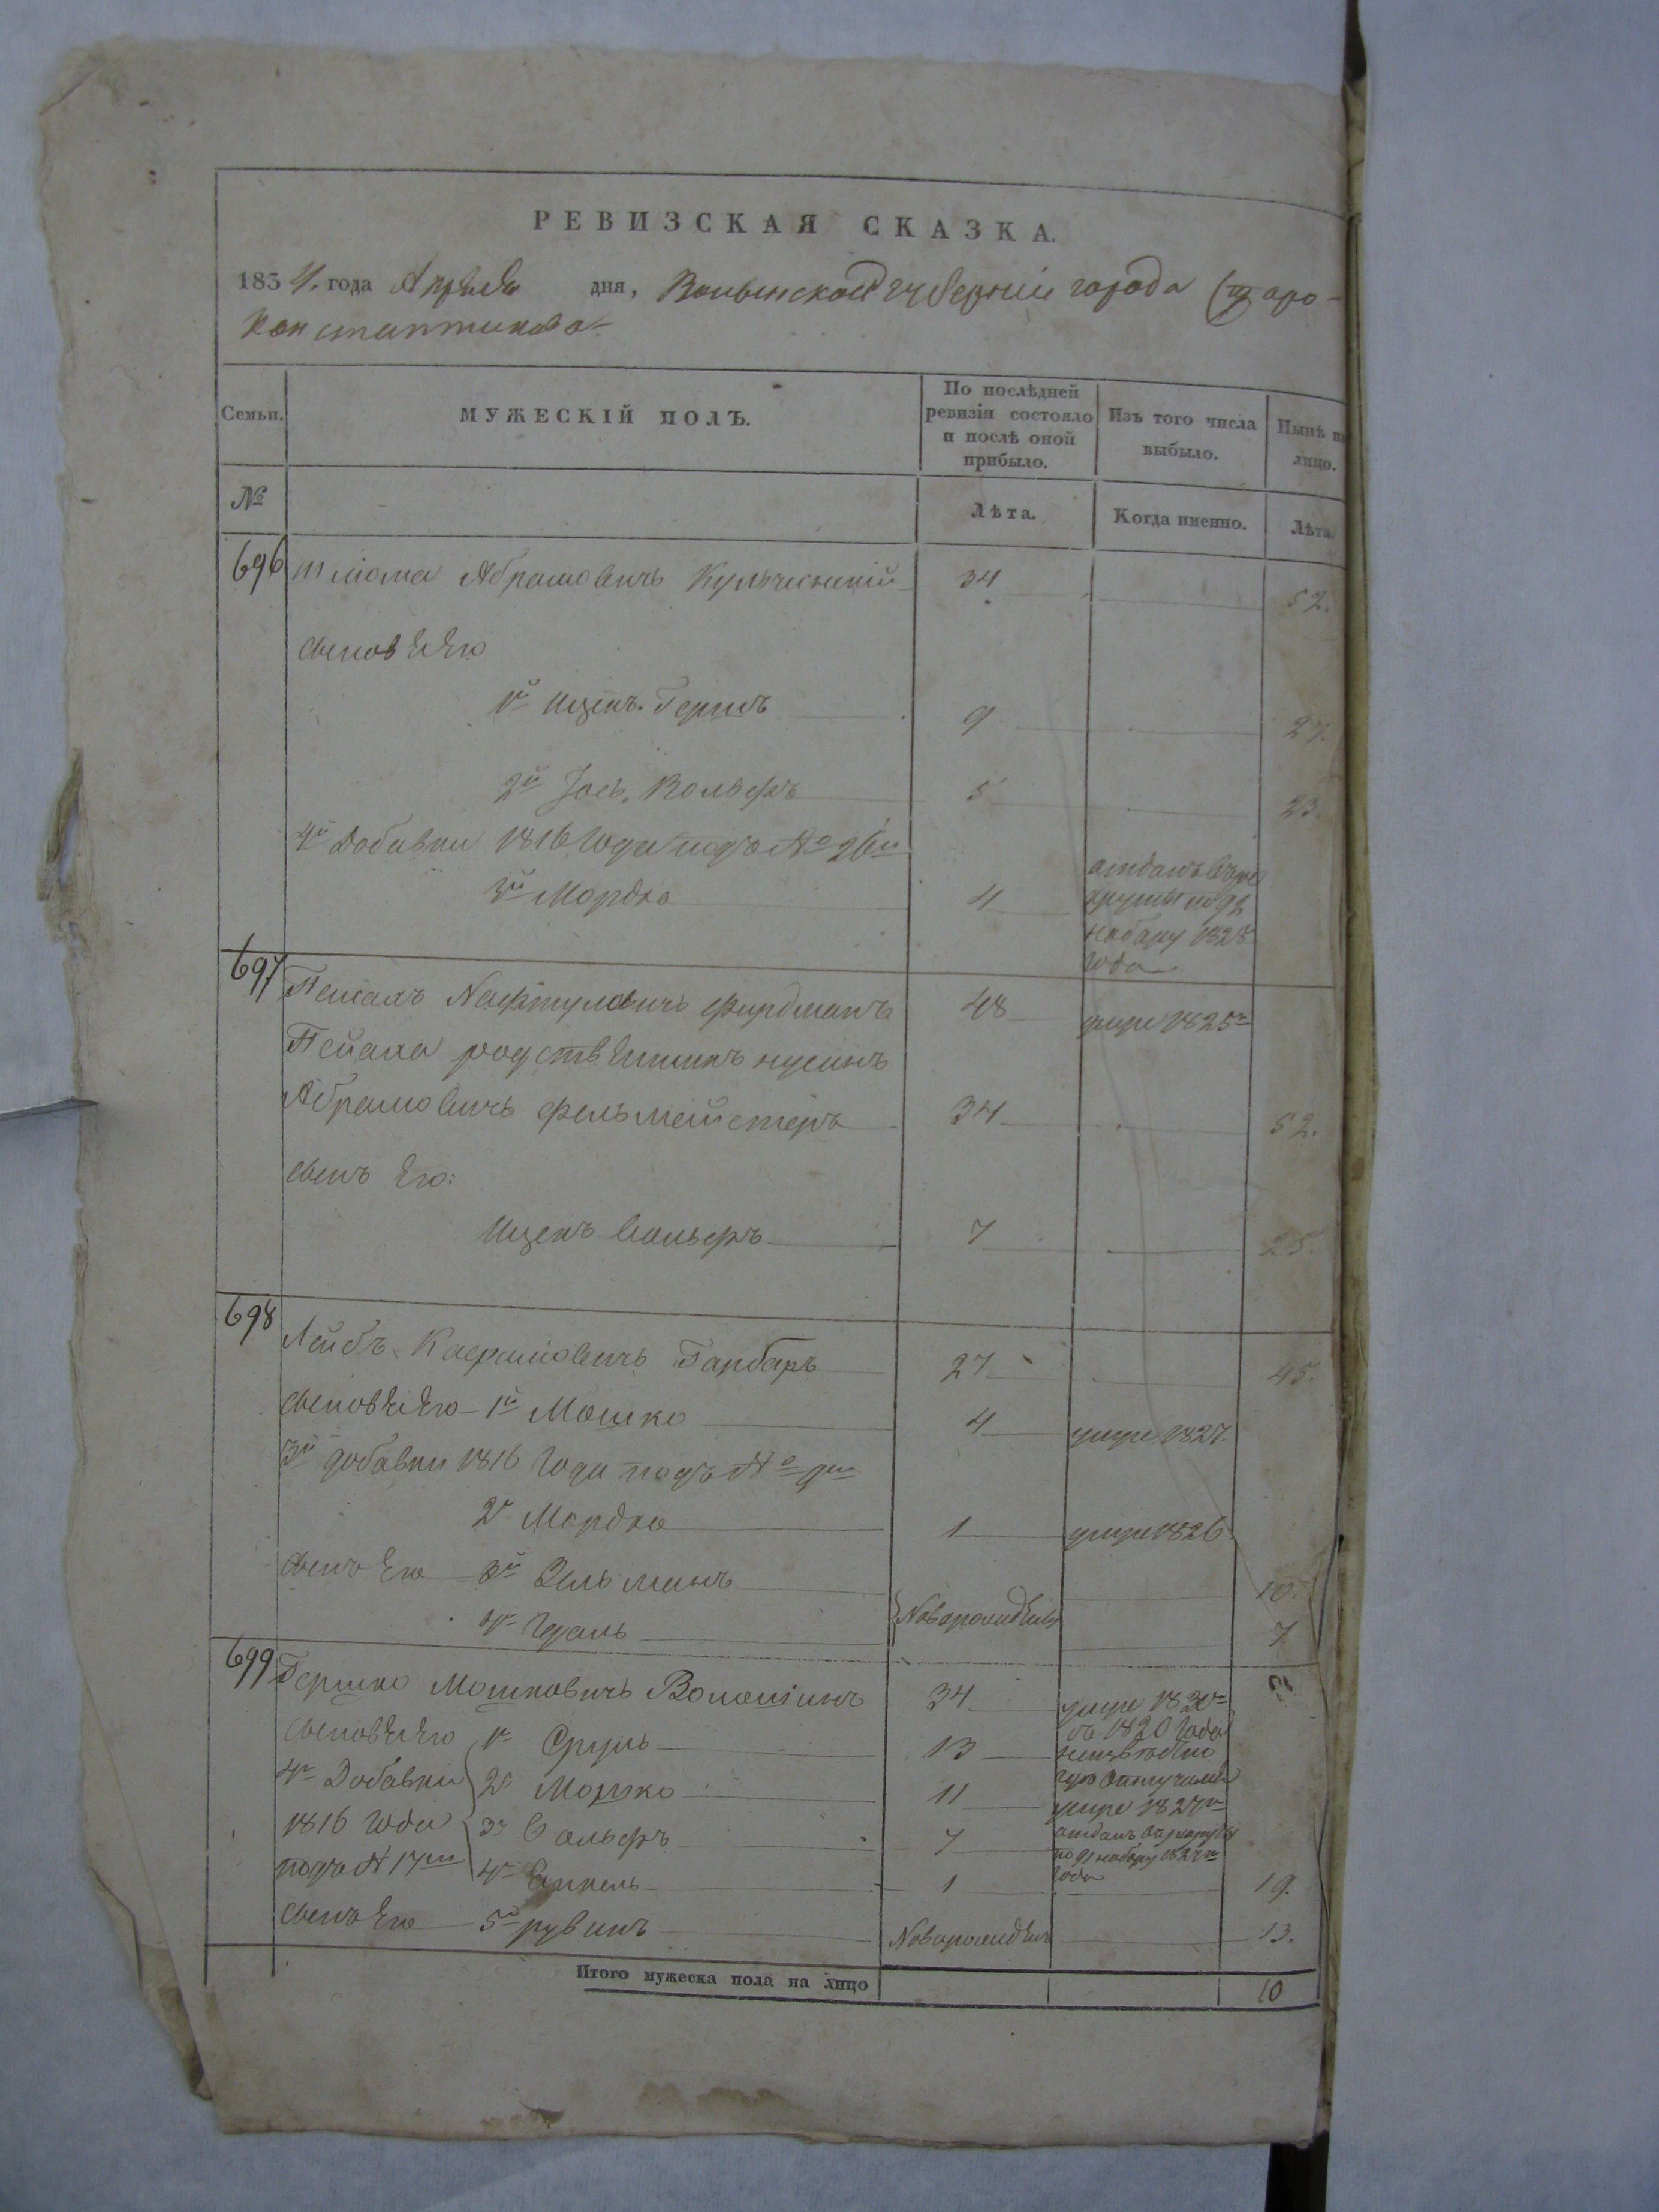 РЕВИЗСКАЯ СКАЗКА.
1834. года Апреля дня, Волынской губернии города Старо-
константинова
Семьи. МУЖЕСКІЙ ПОЛЪ. По послѣдней ревизіи состояло и послѣ оной прибыло. Изъ того числа выбыло. Нынѣ на лицо.
№ Лѣта. Когда именно. Лѣта.
696 Шліома Абрамовичъ Кульчинскій 34 52.
сыновЬя Его
1й Ицекъ-Гершъ 9 27.
2й Іось, Вольфъ 5 23.
4й Добавки 1816 года подъ № 26м
3й Мордко 4 отданъ въ рекруты по 92 набору 1828 года
697 Пейсахъ Нафтуловичъ фурдманъ 48 умре 1825го
Пейсаха родственникъ нусинъ
Абрамовичъ фельмейстеръ 34 52.
сынъ Его:
Ицекъ Вольфъ 7 25.
698 Лейбъ Гарбаръ 27 45.
сыновЬя Его 1й Мошко 4 умре 1827.
3й добавки 1816 года подъ № 9м
2й Мордко 1 умре 1826
сынъ Его 3й Зельманъ 10.
4й Новорожденны 7
699 Гершко Мошковичъ 34 умре 1830го
сыновЬя Его 1й Сруль 13 съ 1820 года неизвестно
4й Добавки 2й Мошко 11 умре 1827го
1816 года 3й Вольфъ 7 отданъ въ рекруты по 91 набору 1827го года
подъ № 17м 4й 1 19.
сынъ Его 5й рувинъ Новорожден 13.
Итого мужеска пола на лицо 10